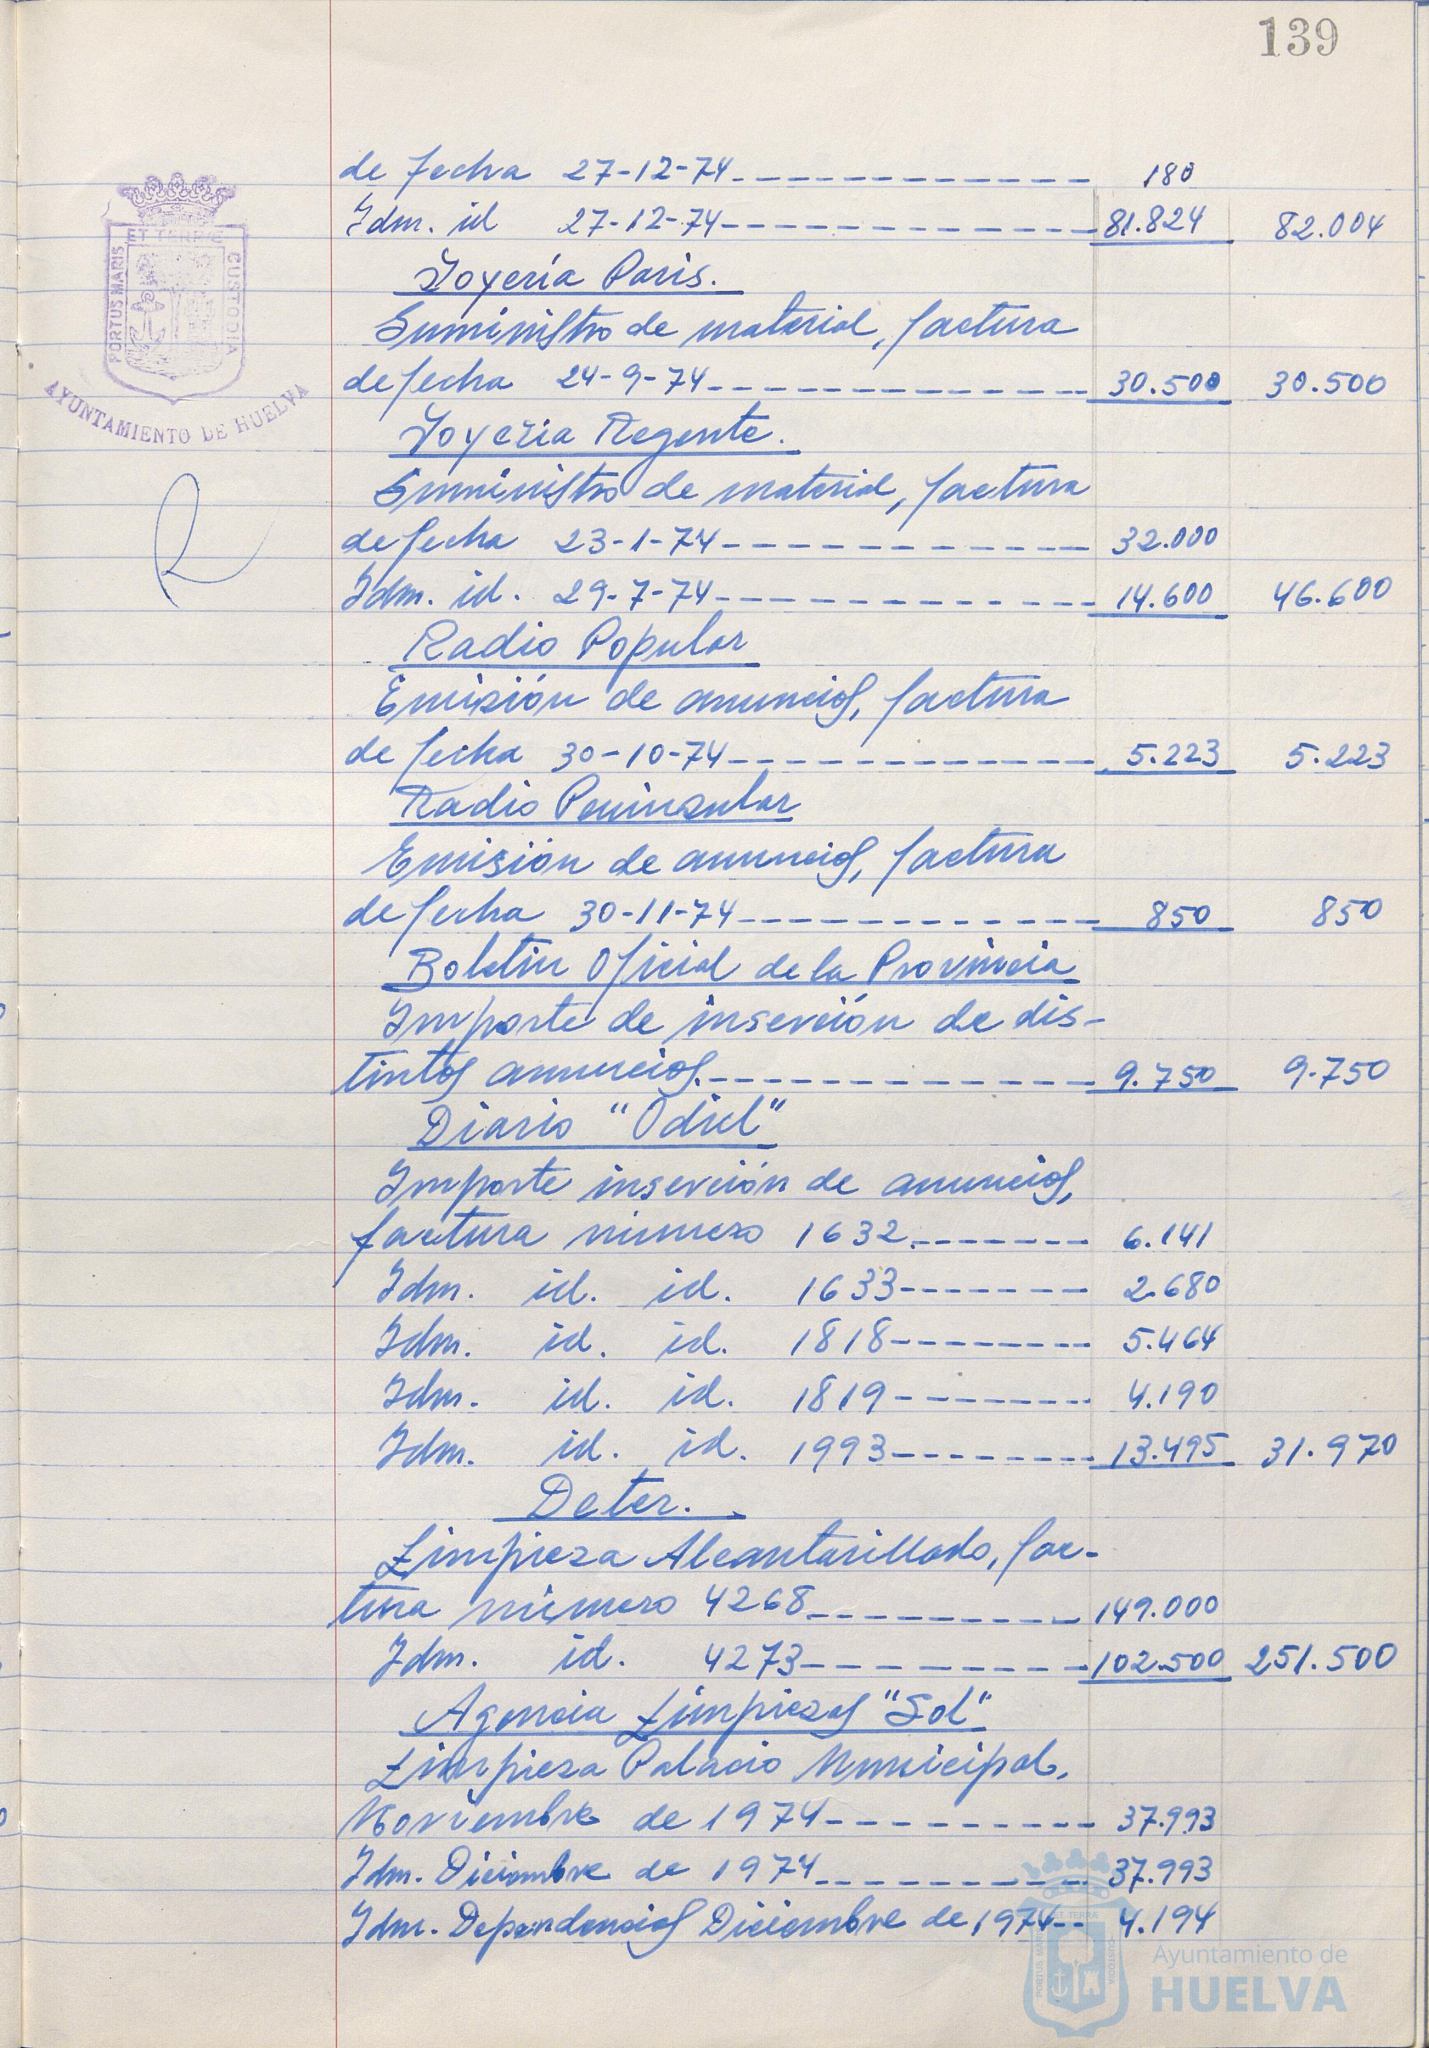 139
de fecha 27-12-74 ------------ 180
Idm. id 27-12-74 ------------ 81.824 82.004
Joyería Paris.
Suministro de material, factura
de fecha 24-9-74 ------------ 30.500 30.500
Joyeria Regente.
Suministro de material, factura
de fecha 23-1-74 ------------ 32.000
Idm. id. 29-7-74 ------------ 14.600 46.600
Radio Popular
Emisión de anuncios, factura
de fecha 30-10-74 ------------ 5.223 5.223
Radio Peninsular
Emisión de anuncios, factura
de fecha 30-11-74 ------------ 850 850
Boletin Oficial de la Provincia
Importe de inserción de dis-
tintos anuncios. ------------ 9.750 9.750
Diario "Odiel"
Importe inserción de anuncios,
factura número 1632. ------- 6.141
Idm. id. id. 1633 ------- 2.680
Idm. id. id. 1818 ------- 5.464
Idm. id. id. 1819 ------- 4.190
Idm. id. id. 1993 ------- 13.495 31.970
Deter.
Limpieza Alcantarillado, fac-
tura número 4268 --------- 149.000
Idm. id. 4273 --------- 102.500 251.500
Agencia Limpiezas "Sol"
Limpieza Palacio Municipal,
Noviembre de 1974 --------- 37.993
Idm. Diciembre de 1974 --------- 37.993
Idm. Dependencias Diciembre de 1974 -- 4.194
PORTUS MARIS ET TERRAE CUSTODIA
AYUNTAMIENTO DE HUELVA
Ayuntamiento de
HUELVA